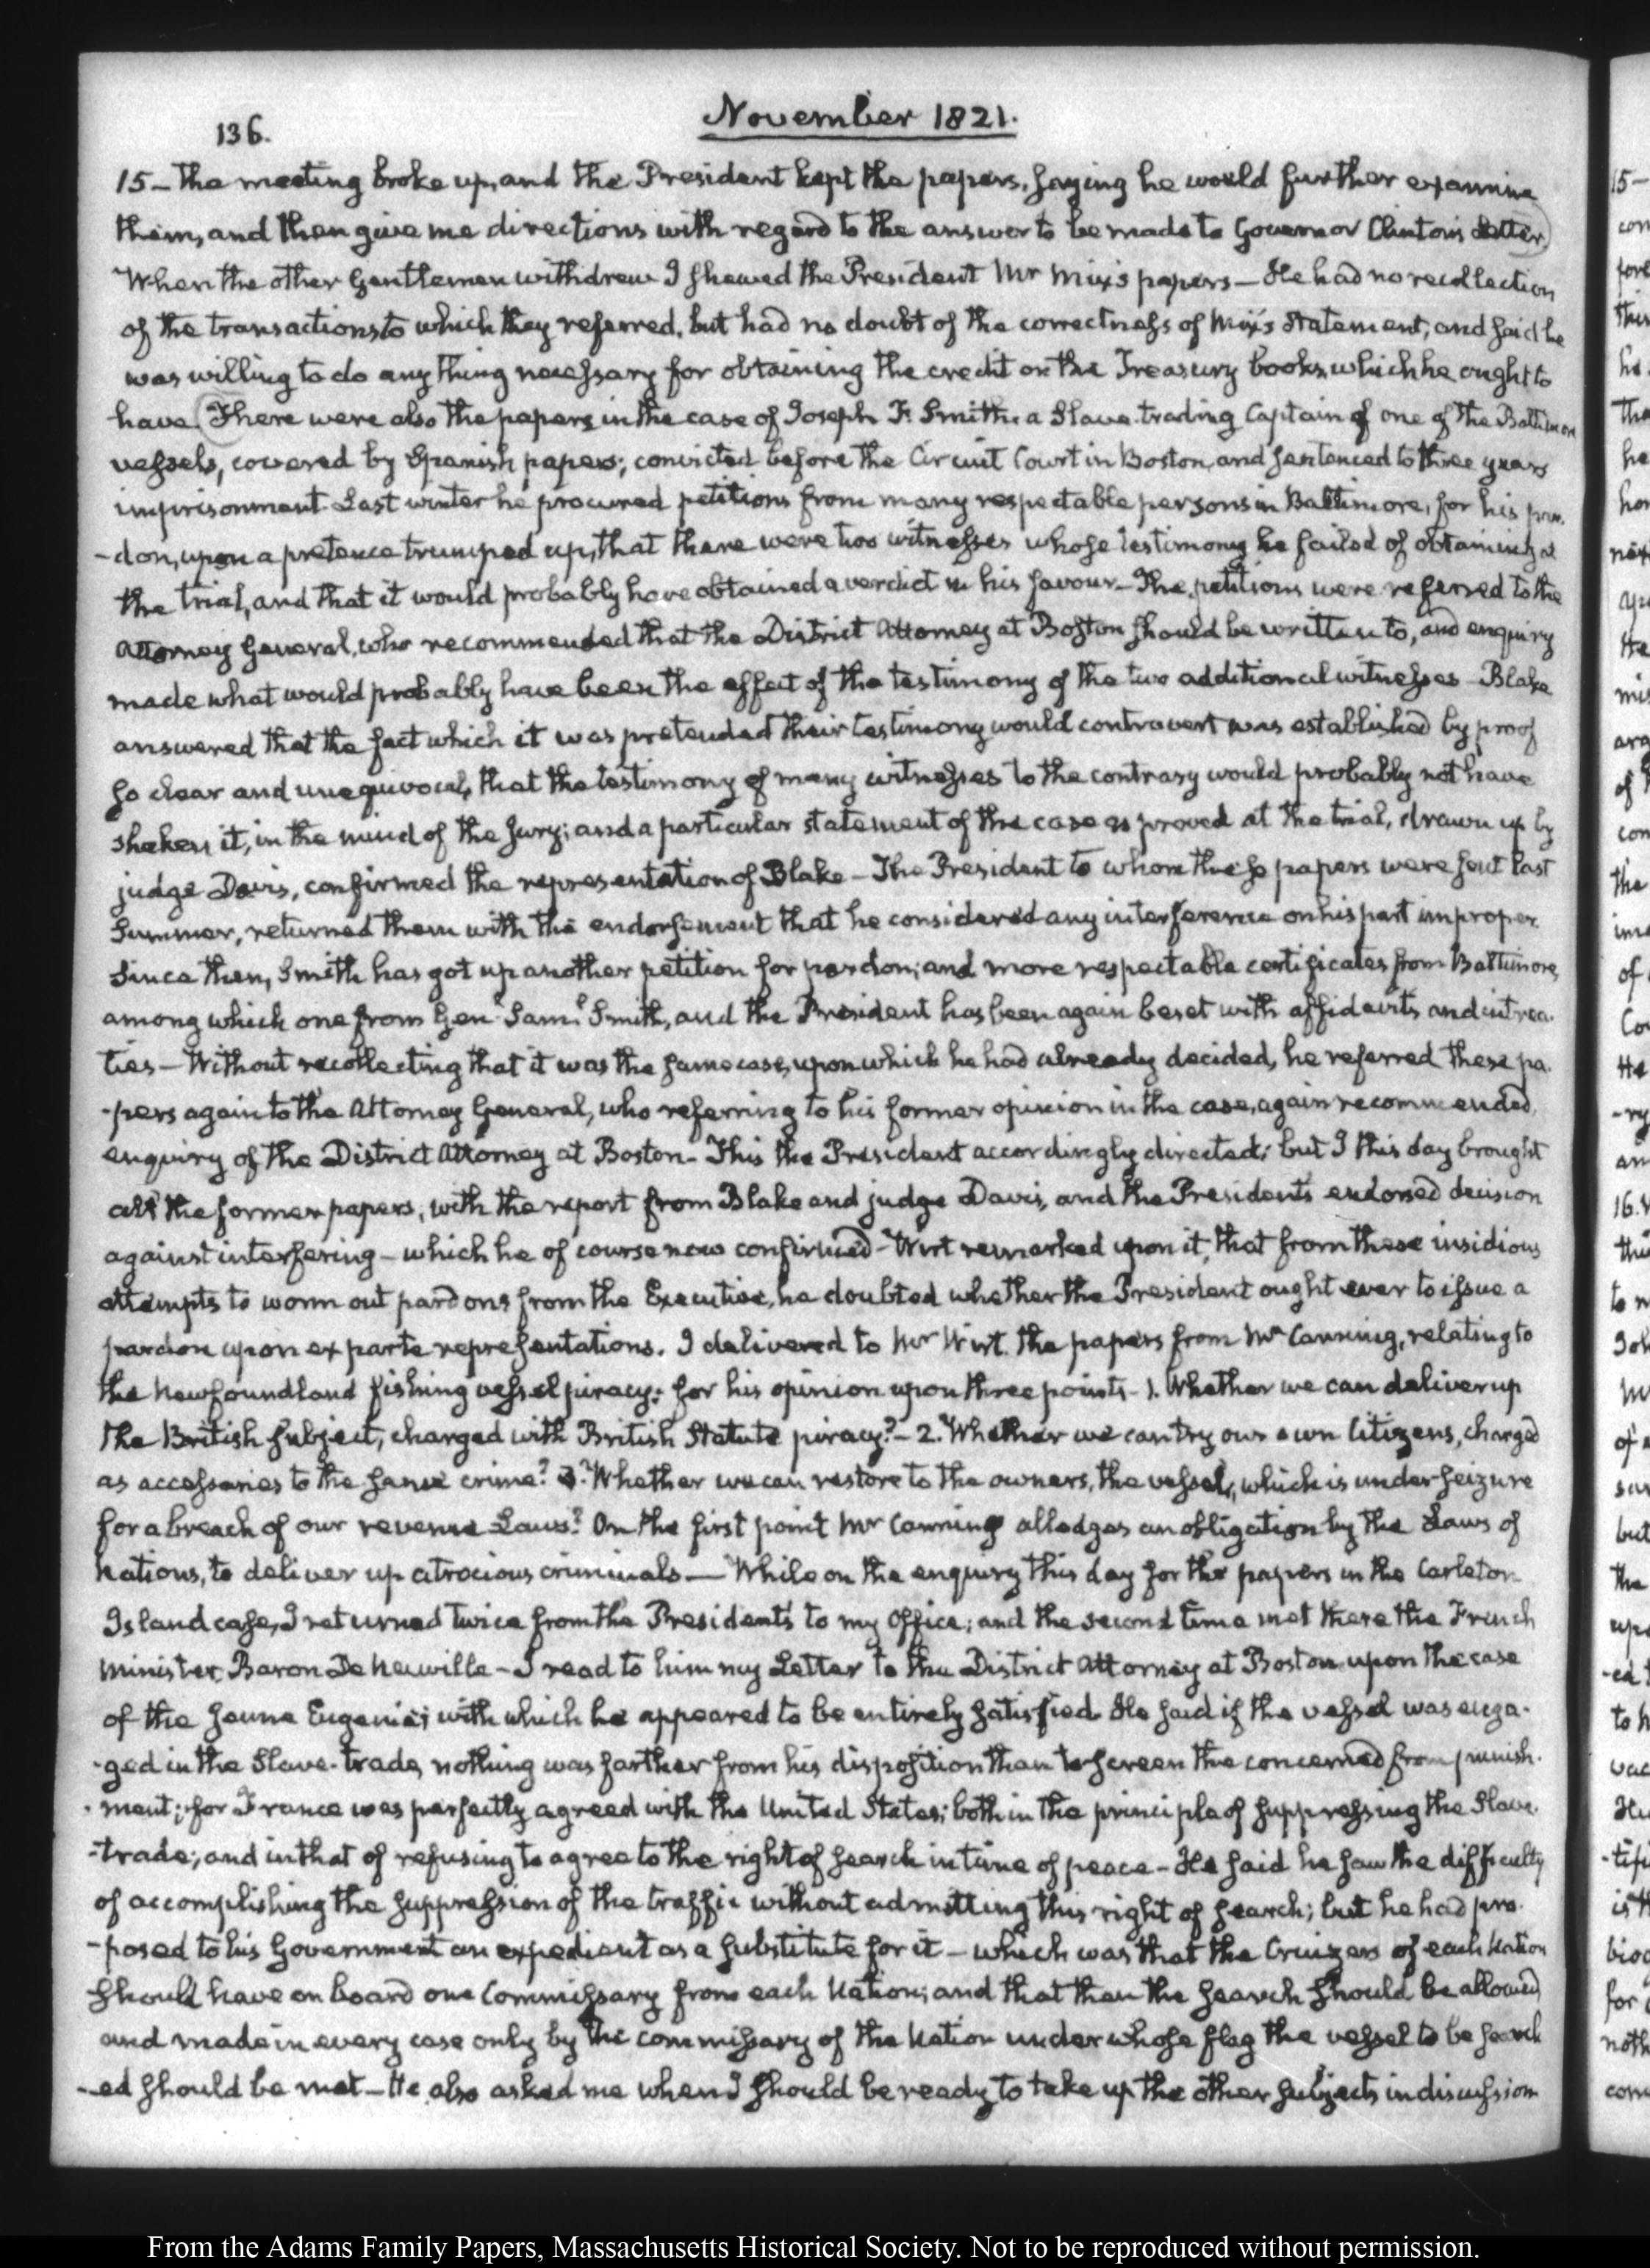 136.
November 1821.
15 – The meeting broke up, and the President kept the papers, saying he would further examine
them, and then give me directions with regard to the answer to be made to Governor Clinton's Letter.)
When the other Gentlemen withdrew I shewed the President Mr Mix's papers – He had no recollection
of the transactions to which they referred, but had no doubt of the correctness of Mix's statement, and said he
was willing to do any thing necessary for obtaining the credit on the Treasury books, which he ought to
have (There were also the papers in the case of Joseph F. Smith, a Slave-trading Captain of one of the Baltimore
vessels, covered by Spanish papers; convicted before the Circuit Court in Boston, and sentenced to three years
imprisonment. Last winter he procured petitions from many respectable persons in Baltimore, for his par-
-don, upon a pretence trumped up, that there were two witnesses whose testimony he failed of obtaining at
the trial, and that it would probably have obtained a verdict in his favour – The petitions were referred to the
Attorney General, who recommended that the District Attorney at Boston should be written to, and enquiry
made what would probably have been the effect of the testimony of the two additional witnesses – Blake
answered that the fact which it was pretended their testimony would controvert was established by proof
so clear and unequivocal, that the testimony of many witnesses to the contrary would probably not have
shaken it, in the mind of the Jury; and a particular statement of the case as proved at the trial, drawn up by
judge Davis, confirmed the representation of Blake – The President to whom these papers were sent last
Summer, returned them with the endorsement that he considered any interference on his part improper.
Since then, Smith has got up another petition for pardon; and more respectable certificates from Baltimore,
among which one from Genl. Saml. Smith, and the President has been again beset with affidavits and intrea-
ties – Without recollecting that it was the same case, upon which he had already decided, he referred these pa-
-pers again to the Attorney General, who referring to his former opinion in the case, again recommended
enquiry of the District Attorney at Boston – This the President accordingly directed; but I this day brought
all the former papers, with the report from Blake and judge Davis, and the President's endorsed decision
against interfering – which he of course now confirmed – Wirt remarked upon it, that from these insidious
attempts to worm out pardons from the Executive, he doubted whether the President ought ever to issue a
pardon upon ex parte representations. I delivered to Mr Wirt the papers from Mr Canning, relating to
the Newfoundland fishing vessel piracy: for his opinion upon three points – 1. Whether we can deliver up
the British subject, charged with British Statute piracy? – 2. Whether we can try our own Citizens, charged
as accessaries to the same crime? 3. Whether we can restore to the owners, the vessel, which is under seizure
for a breach of our revenue Laws? On the first point Mr Canning alledges an obligation by the Laws of
Nations, to deliver up atrocious criminals — While on the enquiry this day for the papers in the Carleton
Island case, I returned twice from the President's to my Office; and the second time met there the French
Minister, Baron De Neuville – I read to him my Letter to the District Attorney at Boston upon the case
of the Jeune Eugenie; with which he appeared to be entirely satisfied. He said if the vessel was enga-
-ged in the Slave-trade, nothing was farther from his disposition than to screen the concerned from punish-
-ment; for France was perfectly agreed with the United States; both in the principle of suppressing the Slave-
-trade; and in that of refusing to agree to the right of search in time of peace – He said he saw the difficulty
of accomplishing the suppression of the traffic without admitting this right of search; but he had pro-
-posed to his Government an expedient as a substitute for it – which was that the Cruizers of each Nation
should have on board one Commissary from each Nation; and that then the search should be allowed
and made in every case only by the commissary of the Nation under whose flag the vessel to be search
-ed should be met – He also asked me when I should be ready to take up the other subjects in discussion
From the Adams Family Papers, Massachusetts Historical Society. Not to be reproduced without permission.